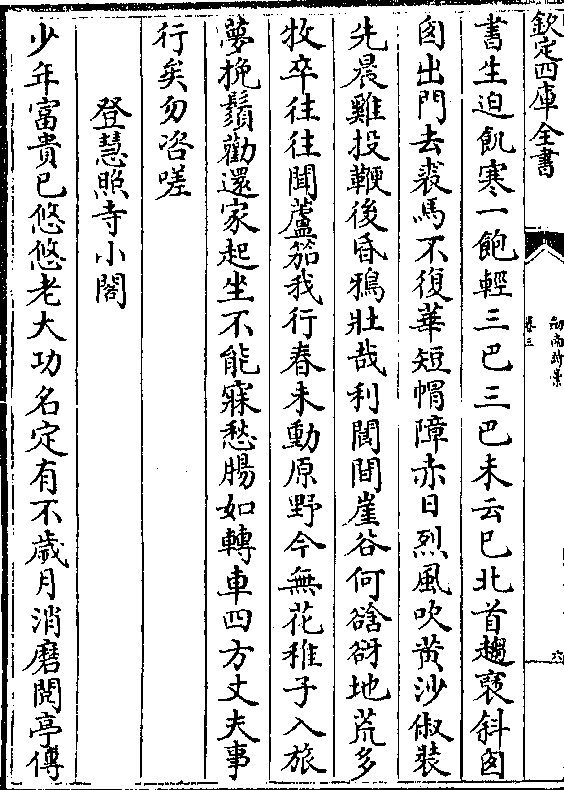 欽定四庫全書
劍南詩藁
卷三
六
書生迫飢寒一飽輕三巴三巴未云已北首趨襃斜囪
囪出門去裘馬不復華短帽障赤日烈風吹黄沙俶裝
先晨雞投鞭後昏鴉壯哉利閬間崖谷何谽谺地荒多
牧卒往往聞蘆笳我行春未動原野今無花稚子入旅
夢挽鬚勸還家起坐不能寐愁腸如轉車四方丈夫事
行矣勿咨嗟
登慧照寺小閣
少年富貴已悠悠老大功名定有不歲月消磨閱亭傳